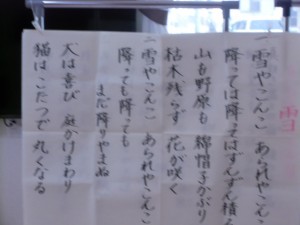 雪
一 雪やこんこ あられやこんこ
降っては降ってはずんずん積る
山も野原も 綿帽子かぶり
枯木残らず 花が咲く
二 雪やこんこ あられやこんこ
降っても降っても
まだ降りやまぬ
犬は喜び 庭かけまわり
猫はこたつで 丸くなる